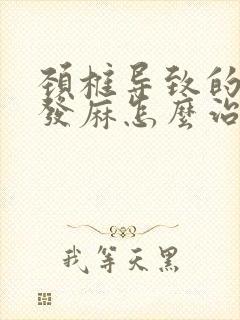 頚椎导致的
發麻怎麼治
我等天黑